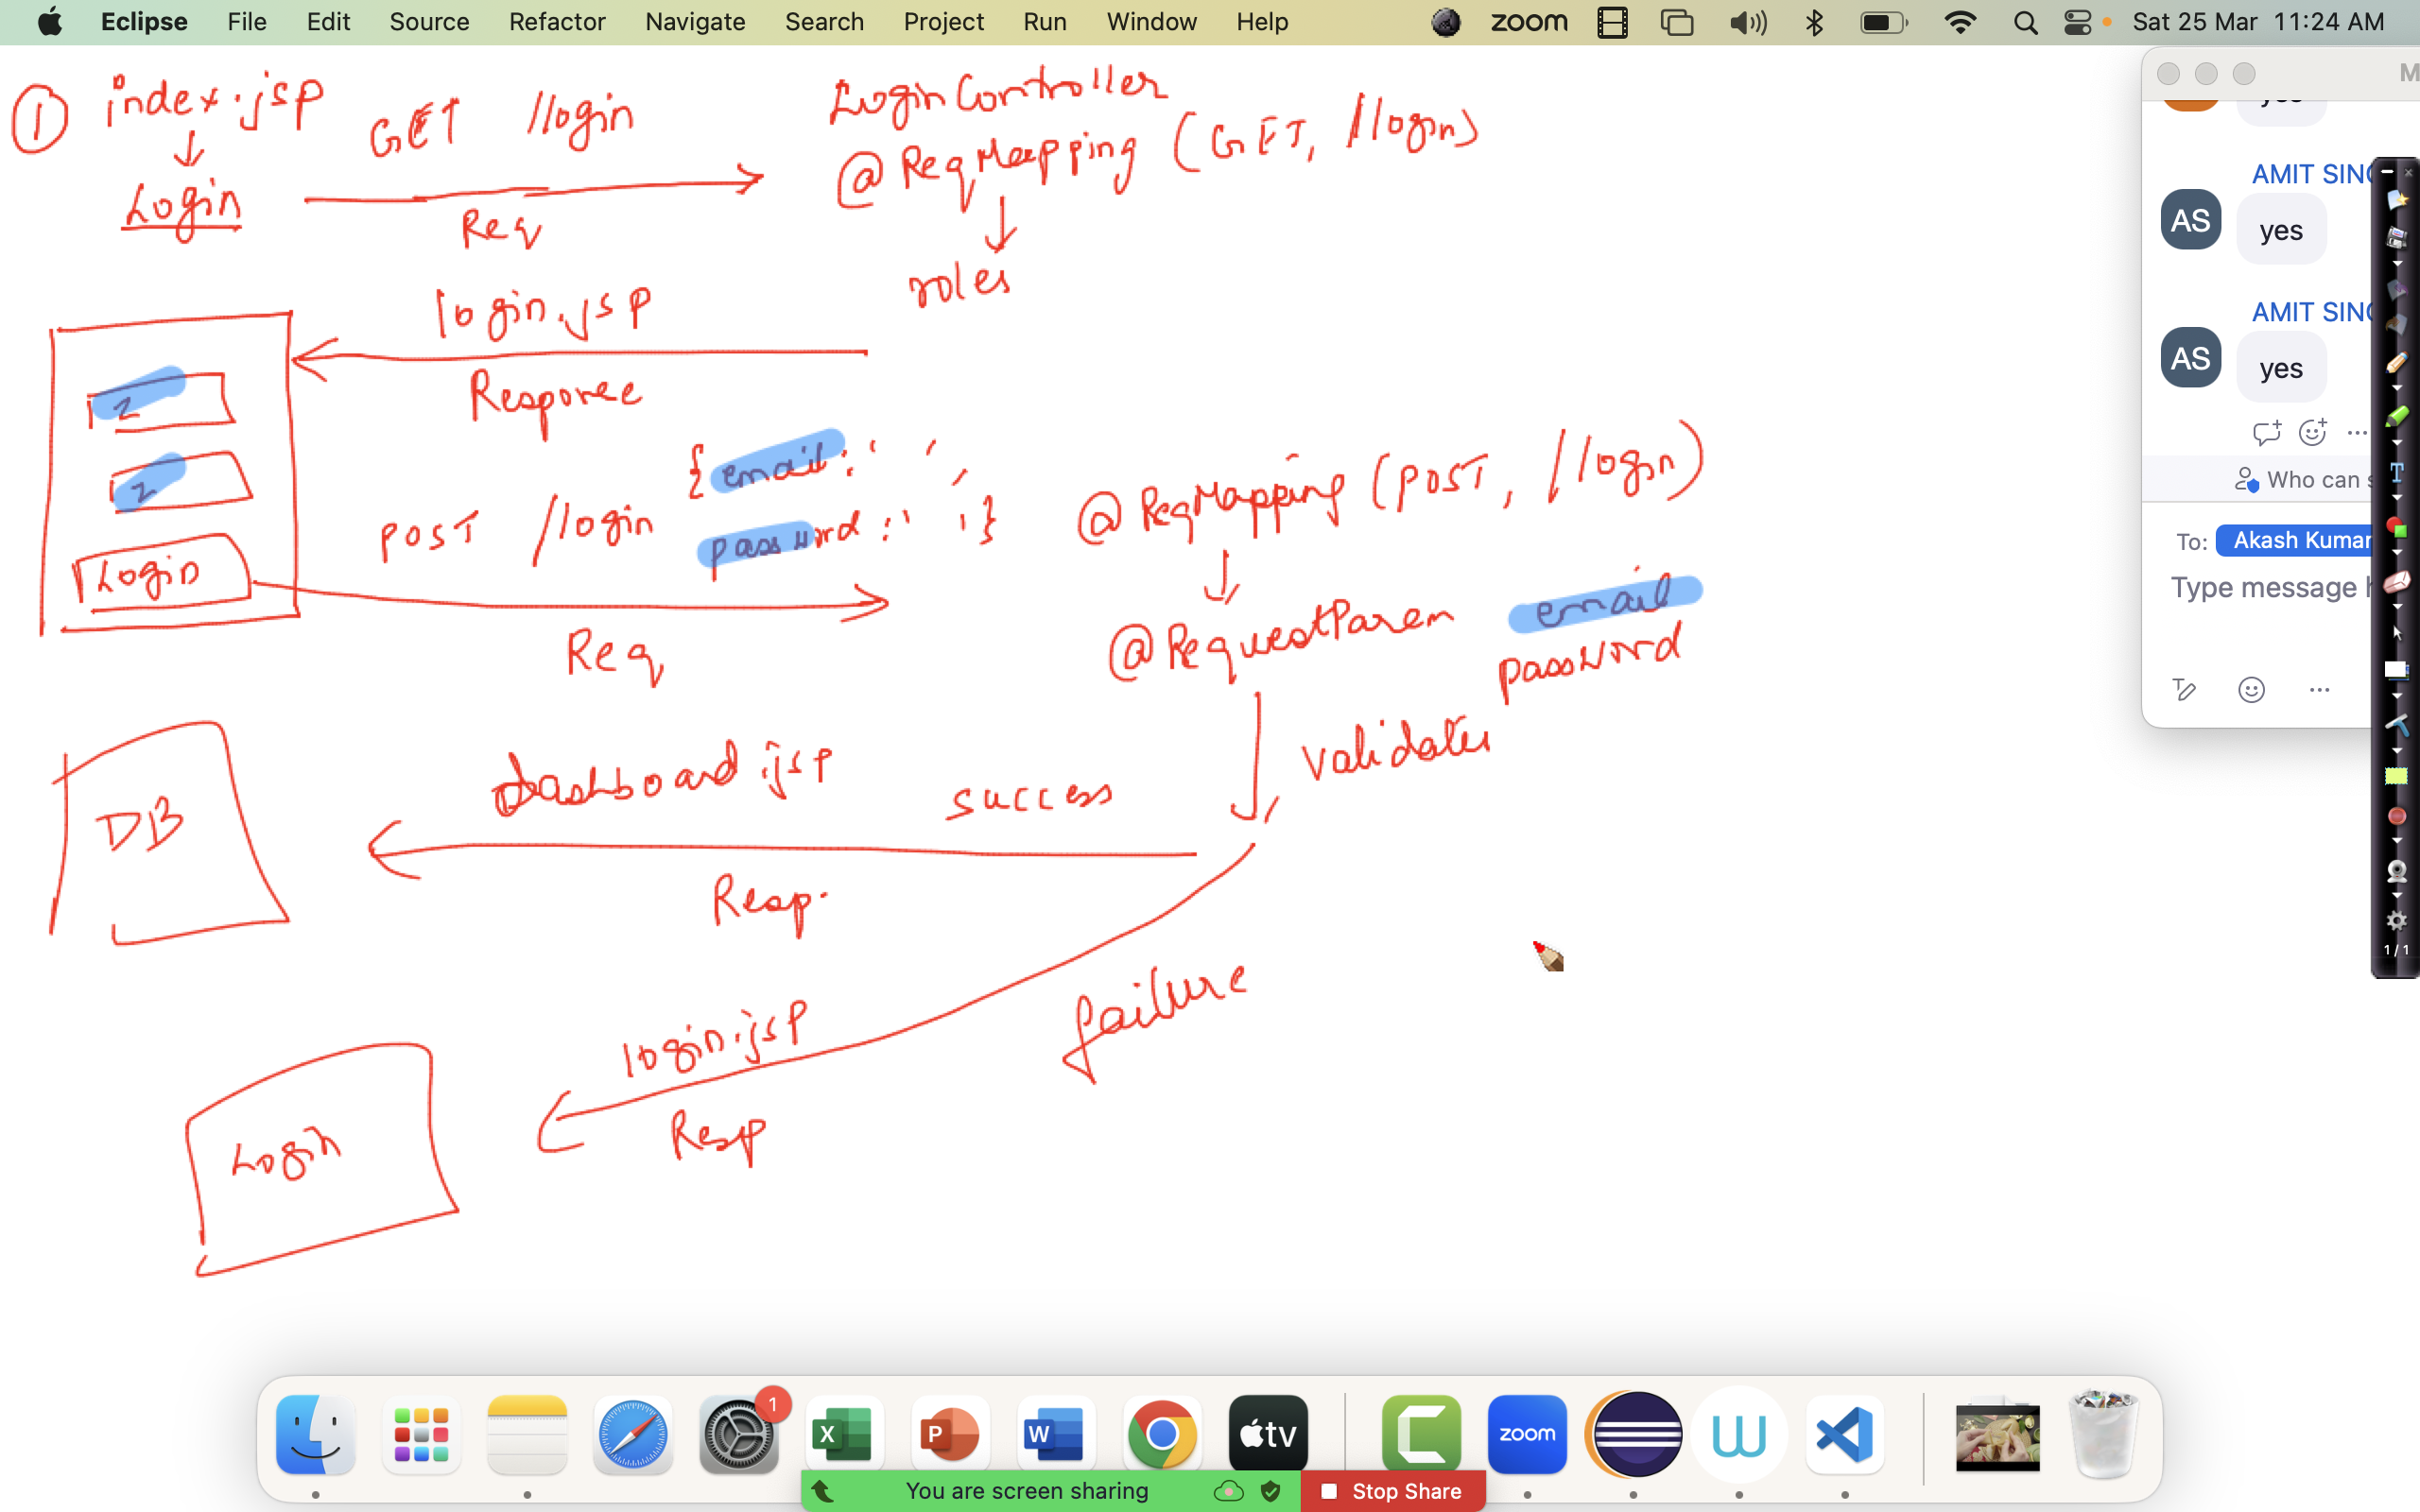 Eclipse File Edit Source Refactor Navigate Search Project Run Window Help zoom Sat 25 Mar 11:24 AM
① index.jsp
↓
Login
GET //login
Req
LoginController
@ReqMapping (GET, //login)
↓
roles
login.jsp
Response
Login
POST //login {email: ' ',
password: ' '}
Req
@ReqMapping (POST, //login)
↓
@RequestParam email
password
validates
DB
dashboard.jsp success
Resp.
failure
login.jsp
Resp
Login
AMIT SING
AS yes
AMIT SING
AS yes
Who can s
To: Akash Kumar
Type message h
1/1
1
X P W tv zoom
You are screen sharing Stop Share